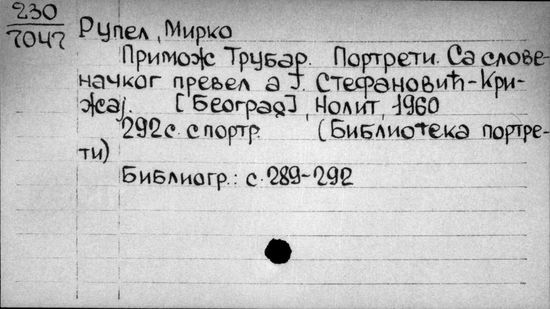 230
7047
Рупел, Мирко
Примож Трубар. Портрети. Са слове-
начког превел а J. Стефановић-Кри-
жај. [Београд], Нолит, 1960
292с. с портр. (Библиотека портре-
ти)
Библиогр.: с. 289-292